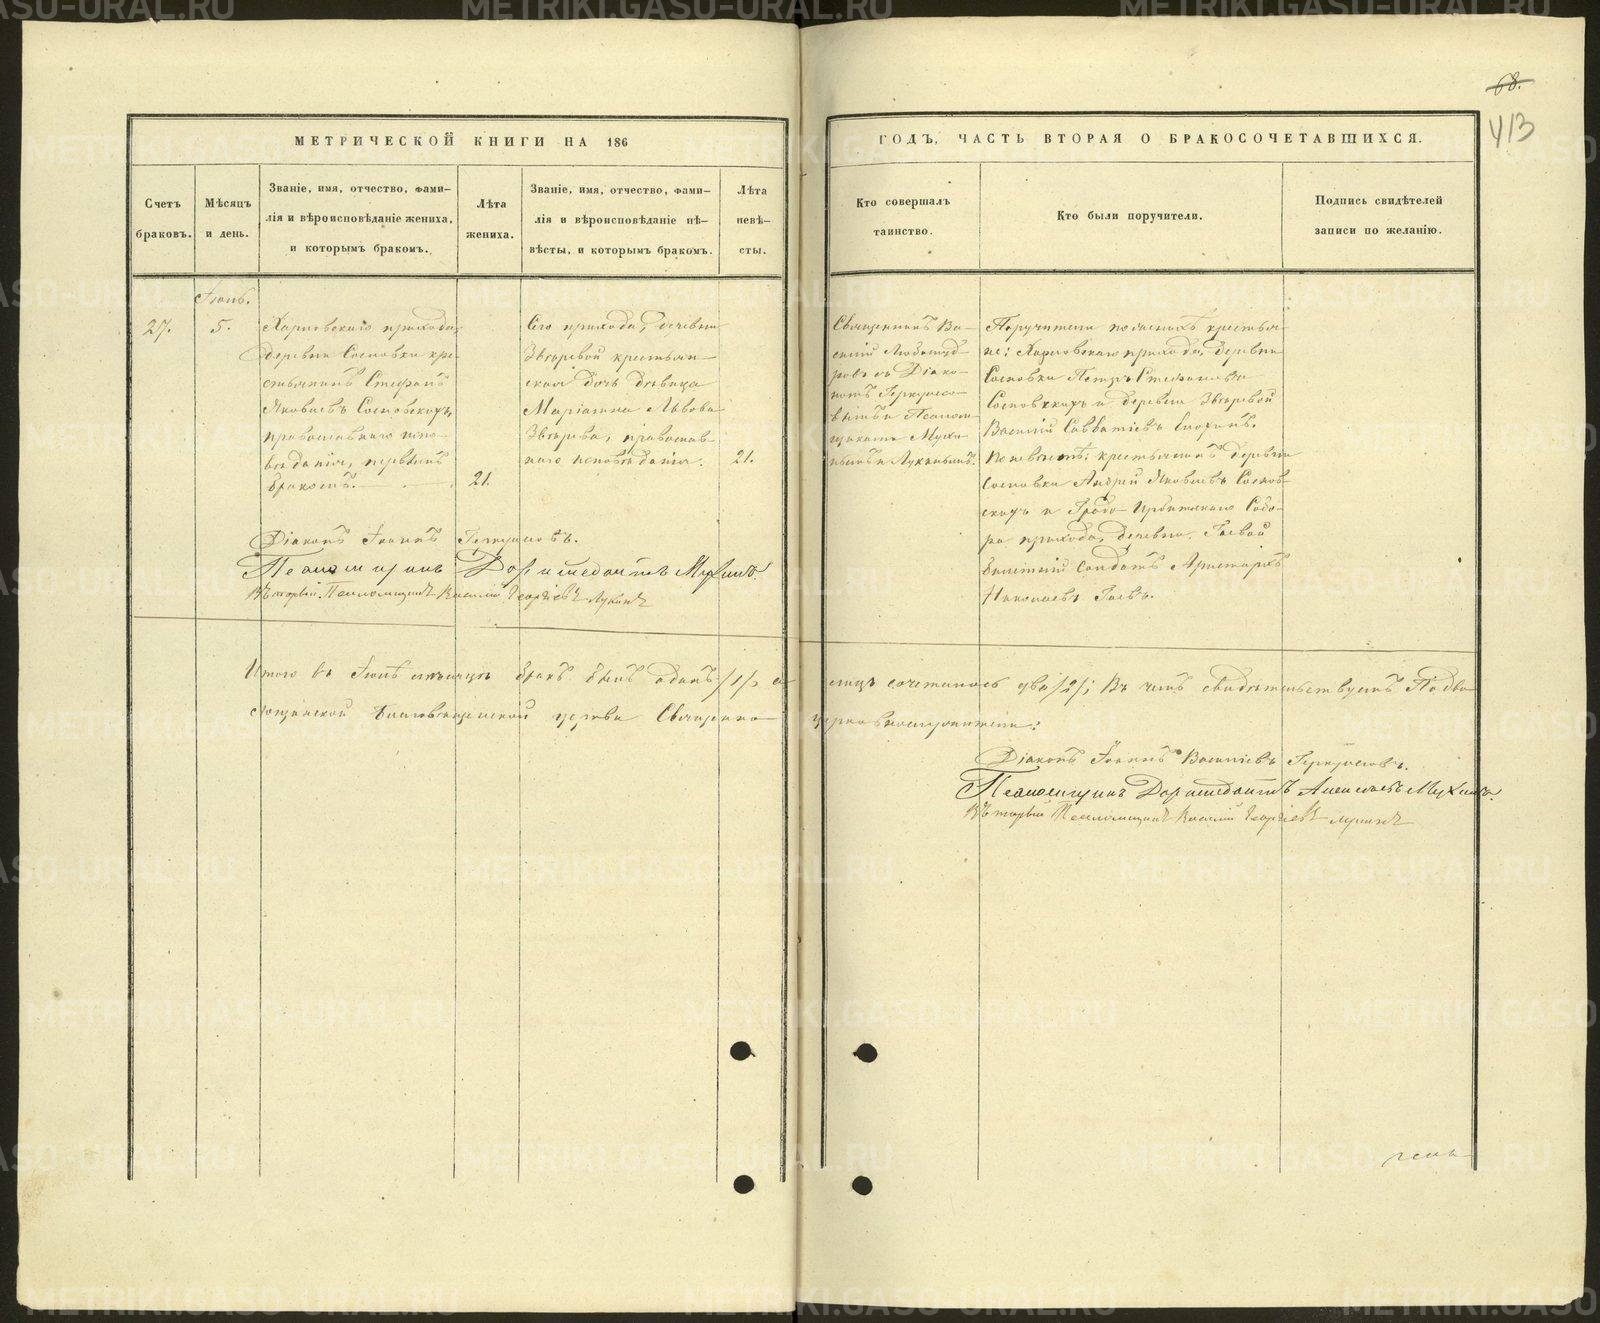 68.
413
МЕТРИЧЕСКОЙ КНИГИ НА 186
ГОДЪ, ЧАСТЬ ВТОРАЯ О БРАКОСОЧЕТАВШИХСЯ.
Счетъ
браковъ.
Мѣсяцъ
и день.
Званіе, имя, отчество, фами-
лія и вѣроисповѣданіе жениха,
и которымъ бракомъ.
Лѣта
жениха.
Званіе, имя, отчество, фами-
лія и вѣроисповѣданіе нѣ-
вѣсты, и которымъ бракомъ.
Лѣта
невѣ-
сты.
Кто совершалъ
таинство.
Кто были поручители.
Подпись свидѣтелей
записи по желанію.
Іюнь.
27.
5.
Харловскаго прихода,
деревни Сосновки кре-
стьянинъ Стефанъ
Яковлевъ Сосновскихъ,
православнаго испо-
вѣданія, первымъ
бракомъ.
21.
Сего прихода, деревни
Звѣревой крестьян-
ская дочь дѣвица
Маріамна Львова
Звѣрева, православ-
наго исповѣданія.
21.
Священникъ Ва-
силій Любомуд-
ровъ съ Діако-
номъ Геркулесо-
вымъ и Псалом-
щиками Мухи-
нымъ и Лукинымъ.
Поручители по женихѣ крестья-
не: Харловскаго прихода, деревни
Сосновки Петръ Стефановъ
Сосновскихъ и деревни Звѣревой
Василій Савватіевъ
По невѣстѣ: крестьянинъ деревни
Сосновки Андрей Яковлевъ Соснов-
скихъ и Градо-Ирбитскаго Собо-
ра прихода, деревни Гаевой
билетный Солдатъ Аристархъ
Николаевъ Гаевъ.
Діаконъ Іоаннъ Геркулесовъ.
Псаломщикъ Доримедонтъ Мухинъ
Вторый Псаломщикъ Василій Георгіевъ Лукинъ
Итого въ Іюнѣ мѣсяцѣ бракъ былъ одинъ /1/, а лицъ сочеталось два /2/; въ чемъ свидѣтельствуемъ
Благовѣщенской церкви Священно-церковнослужители:
Діаконъ Іоаннъ Васильевъ Геркулесовъ.
Псаломщикъ Доримедонтъ Алексѣевъ Мухинъ.
Вторый Псаломщикъ Василій Георгіевъ Лукинъ
METRIKI.GASO-URAL.RU